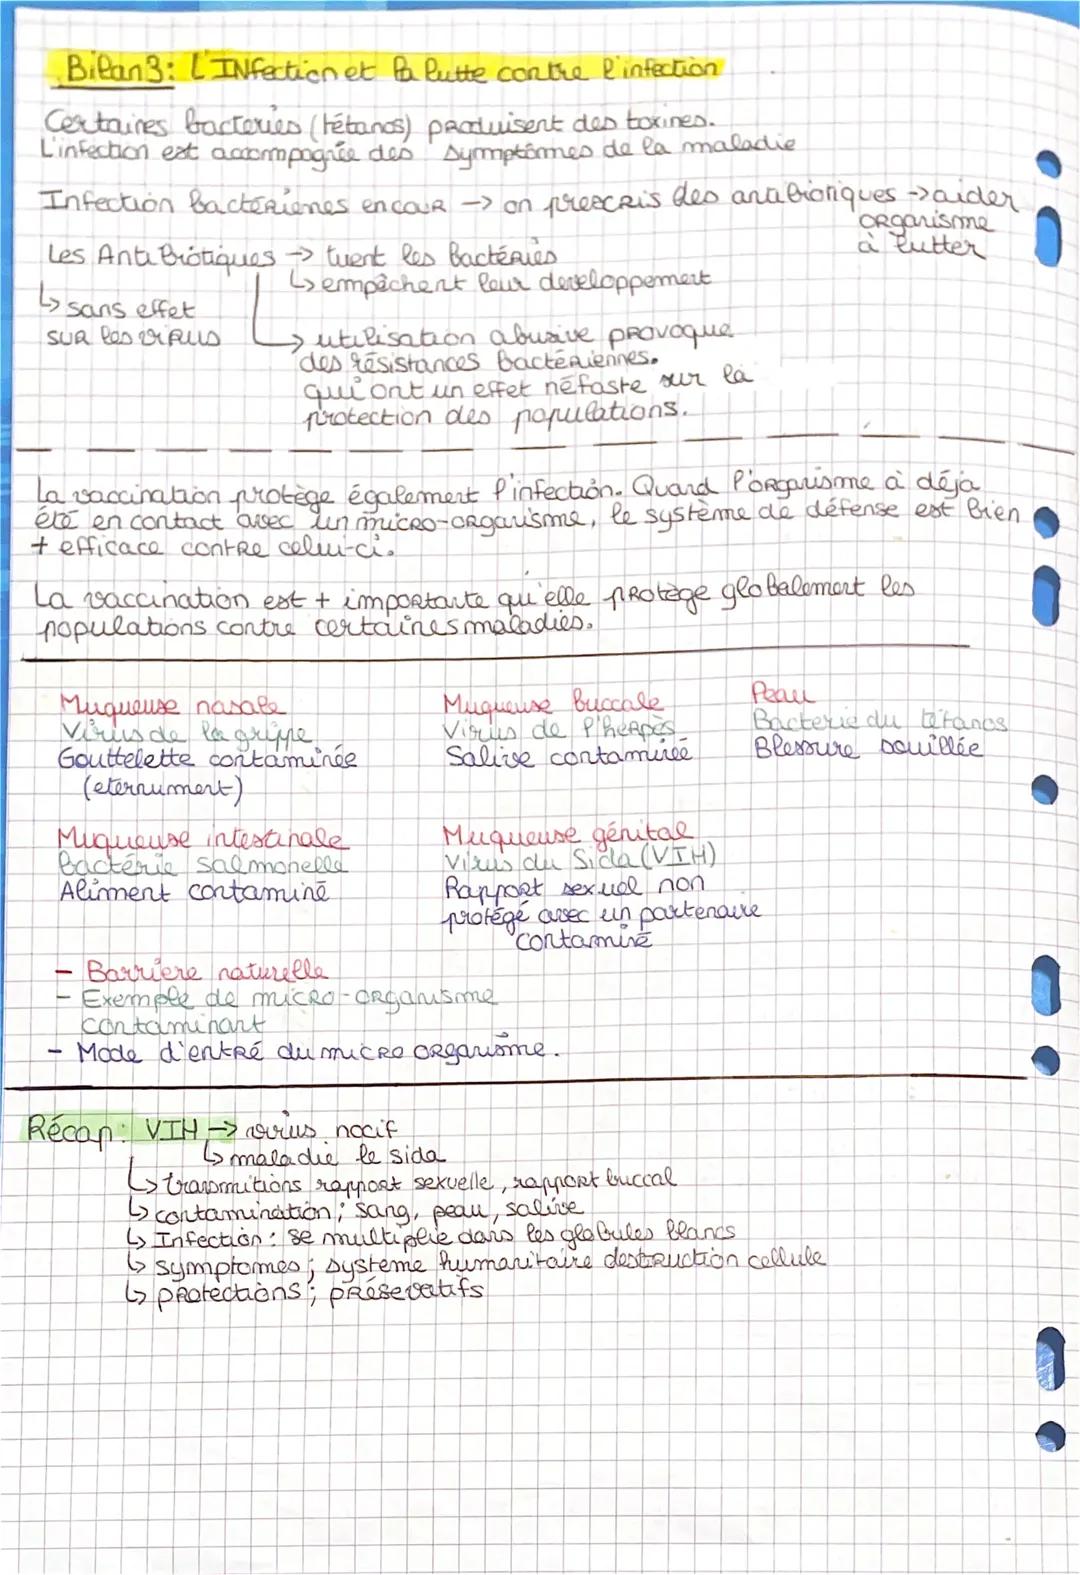 Bilan 3: L'INfection et la lutte contre l'infection
Certaines bacteries (tétanos) produisent des toxines.
L'infection est accompagnée des symptômes de la maladie
Infection bactérienes encour -> on prescris des antibiotiques -> aider
organisme
à lutter
Les Antibiotiques -> tuent les bactéries
↳ empêchent leur developpement
↳ sans effet
sur les virus
↳ utilisation abusive provoque
des résistances bactériennes.
qui ont un effet néfaste sur la
protection des populations.
La vaccination protège également l'infection. Quand l'organisme à déja
été en contact avec un micro-organisme, le système de défense est bien
+ efficace contre celui-ci.
La vaccination est + importante qu'elle protège globalement les
populations contre certaines maladies.
Muqueuse nasale
Virus de la grippe
Gouttelette contaminée
(eternument)
Muqueuse buccale
Virus de l'herpès
Salive contaminée
Peau
Bacterie du tétanos
Blessure souillée
Muqueuse intestinale
Bactérie salmonelle
Aliment contaminé
Muqueuse génital
Virus du Sida (VIH)
Rapport sexuel non
protégé avec un partenaire
contaminé
- Barriere naturelle
- Exemple de micro-organisme
contaminant
- Mode d'entré du micro organisme.
Récap: VIH -> virus nocif
↳ maladie le sida
↳ transmitions rapport sexuelle, rapport buccal
↳ contamination; sang, peau, salive
↳ Infection: se multiplie dans les globules blancs
↳ symptomes; systeme humanitaire destruction cellule
↳ protections; présevatifs